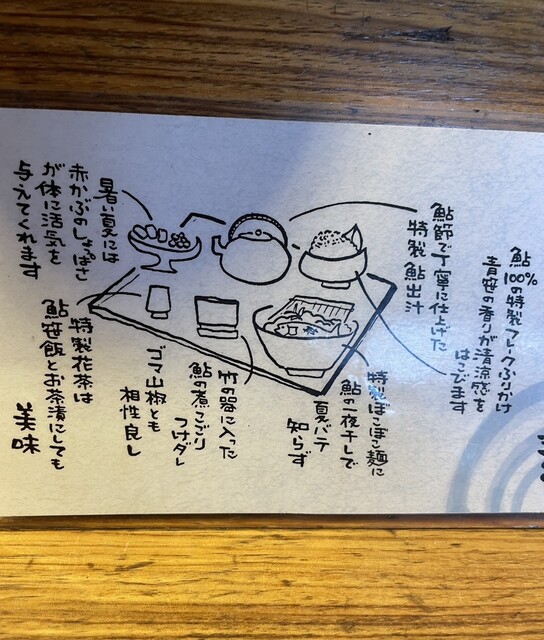 鮎
100%の特製フレークふりかけ
青笹の香りが清涼感を
はこびます
鮎節で丁寧に仕上げた
特製鮎出汁
特製ぼこぼこ麺に
鮎の一夜干しで
夏バテ
知らず
竹の器に入った
鮎の煮こごり
つけダレ
ゴマ山椒とも
相性良し
暑い夏には
赤かぶのしょっぱさ
が体に活気を
与えてくれます
特製花茶は
鮎笹飯とお茶漬にしても
美味